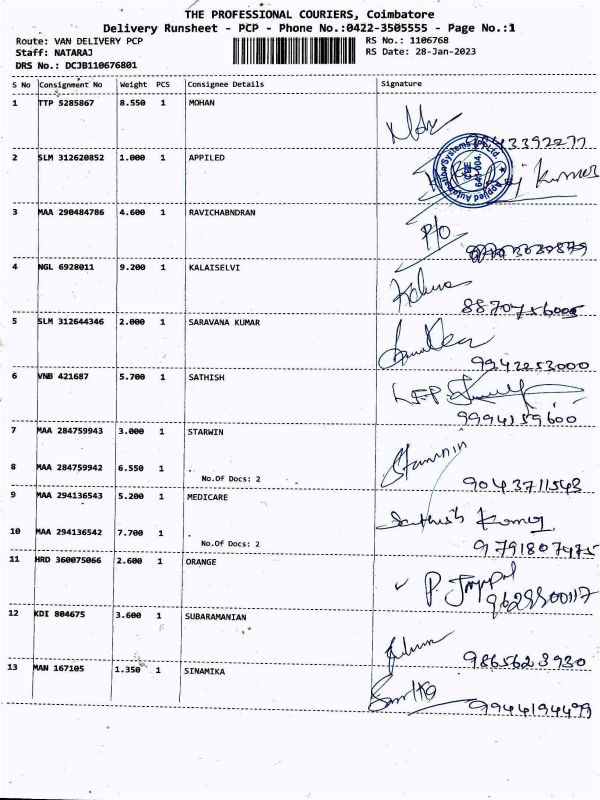 THE PROFESSIONAL COURIERS, Coimbatore
Delivery Runsheet - PCP - Phone No.:0422-3505555 - Page No.:1
Route: VAN DELIVERY PCP RS No.: 1106768
Staff: NATARAJ RS Date: 28-Jan-2023
DRS No.: DCJB110676801
S No Consignment No Weight PCS Consignee Details Signature
1 TTP 5285867 8.550 1 MOHAN
2 SLM 312620852 1.000 1 APPILED
Kumar
3 MAA 290484786 4.600 1 RAVICHABNDRAN
P/o
4 NGL 6928011 9.200 1 KALAISELVI
8870756005
5 SLM 312644346 2.000 1 SARAVANA KUMAR
9942253000
6 VNB 421687 5.700 1 SATHISH
9994159600
7 MAA 284759943 3.000 1 STARWIN
8 MAA 284759942 6.550 1
No.Of Docs: 2
9043711543
9 MAA 294136543 5.200 1 MEDICARE
Sathish Kumar
10 MAA 294136542 7.700 1
No.Of Docs: 2
9791807475
11 HRD 360075066 2.600 1 ORANGE
12 KDI 804675 3.600 1 SUBARAMANIAN
9865623930
13 MAN 167105 1.350 1 SINAMIKA
9944194499